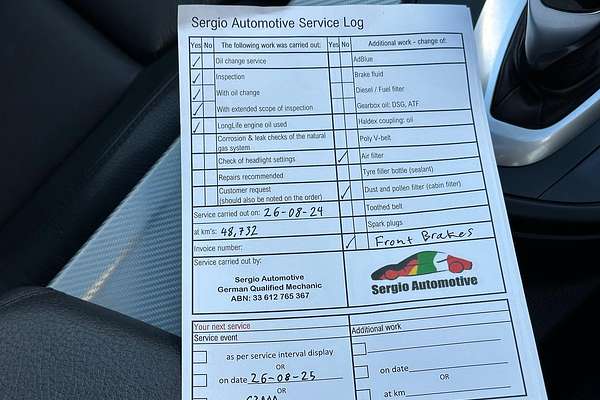 Sergio Automotive Service Log
Yes No The following work was carried out: Yes No Additional work – change of:
Oil change service
AdBlue
Inspection
Brake fluid
With oil change
Diesel / Fuel filter
With extended scope of inspection
Gearbox oil: DSG, ATF
LongLife engine oil used
Haldex coupling: oil
Corrosion & leak checks of the natural
gas system
Poly V-belt
Check of headlight settings
Air filter
Repairs recommended
Tyre filler bottle (sealant)
Customer request
(should also be noted on the order)
Dust and pollen filter (cabin filter)
Service carried out on: 26-08-24
Toothed belt
at km's: 48,732
Spark plugs
Invoice number:
Front Brakes
Service carried out by:
Sergio Automotive
German Qualified Mechanic
ABN: 33 612 765 367
Sergio Automotive
Your next service
Service event
Additional work
as per service interval display
OR
on date 26-08-25
on date
OR
OR
at km